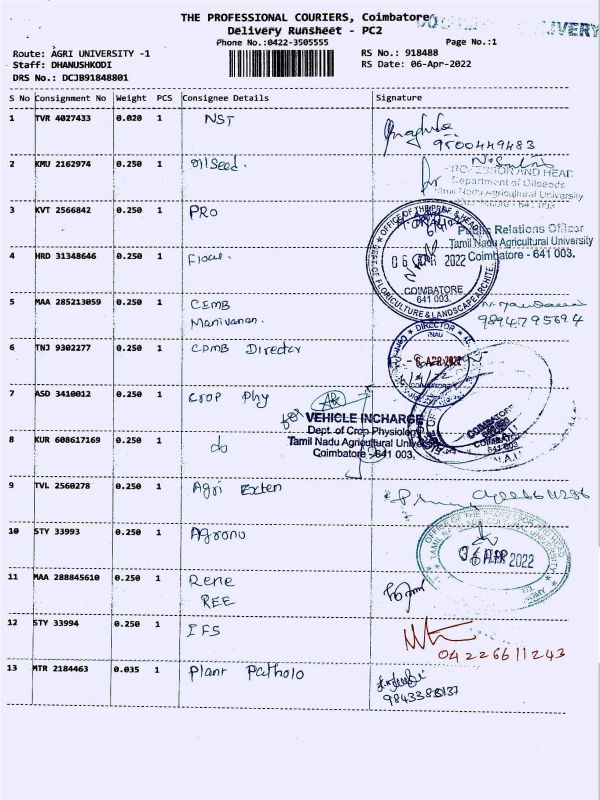 THE PROFESSIONAL COURIERS, Coimbatore
Delivery Runsheet - PC2
Phone No.:0422-3505555
Page No.:1
Route: AGRI UNIVERSITY -1
Staff: DHANUSHKODI
DRS No.: DCJB91848801
RS No.: 918488
RS Date: 06-Apr-2022
S No Consignment No Weight PCS Consignee Details Signature
1 TVR 4027433 0.020 1 NST
9500449483
2 KMU 2162974 0.250 1 Oilseed.
PROFESSOR AND HEAD
Department of Oilseeds
Tamil Nadu Agricultural University
3 KVT 2566842 0.250 1 PRO
Public Relations Officer
Tamil Nadu Agricultural University
Coimbatore - 641 003.
4 HRD 31348646 0.250 1
OFFICE OF THE PROF. & HEAD
06 APR 2022
COIMBATORE
641 003.
FLORICULTURE & LANDSCAPE ARCHITE
5 MAA 285213059 0.250 1 CEMB
Manivanan.
9894795694
6 TNJ 9302277 0.250 1 CPMB Director
DIRECTOR
7 ASD 3410012 0.250 1 Crop Phy
for VEHICLE INCHARGE
Dept. of Crop Physiology
Tamil Nadu Agricultural University
Coimbatore - 641 003.
COIMBATORE
8 KUR 608617169 0.250 1 do
9 TVL 2560278 0.250 1 Agri Exten
10 STY 33993 0.250 1 Agrono
06 APR 2022
11 MAA 288845610 0.250 1 Rene
REE
12 STY 33994 0.250 1 IFS
04226611243
13 MTR 2184463 0.035 1 Plant Patholo